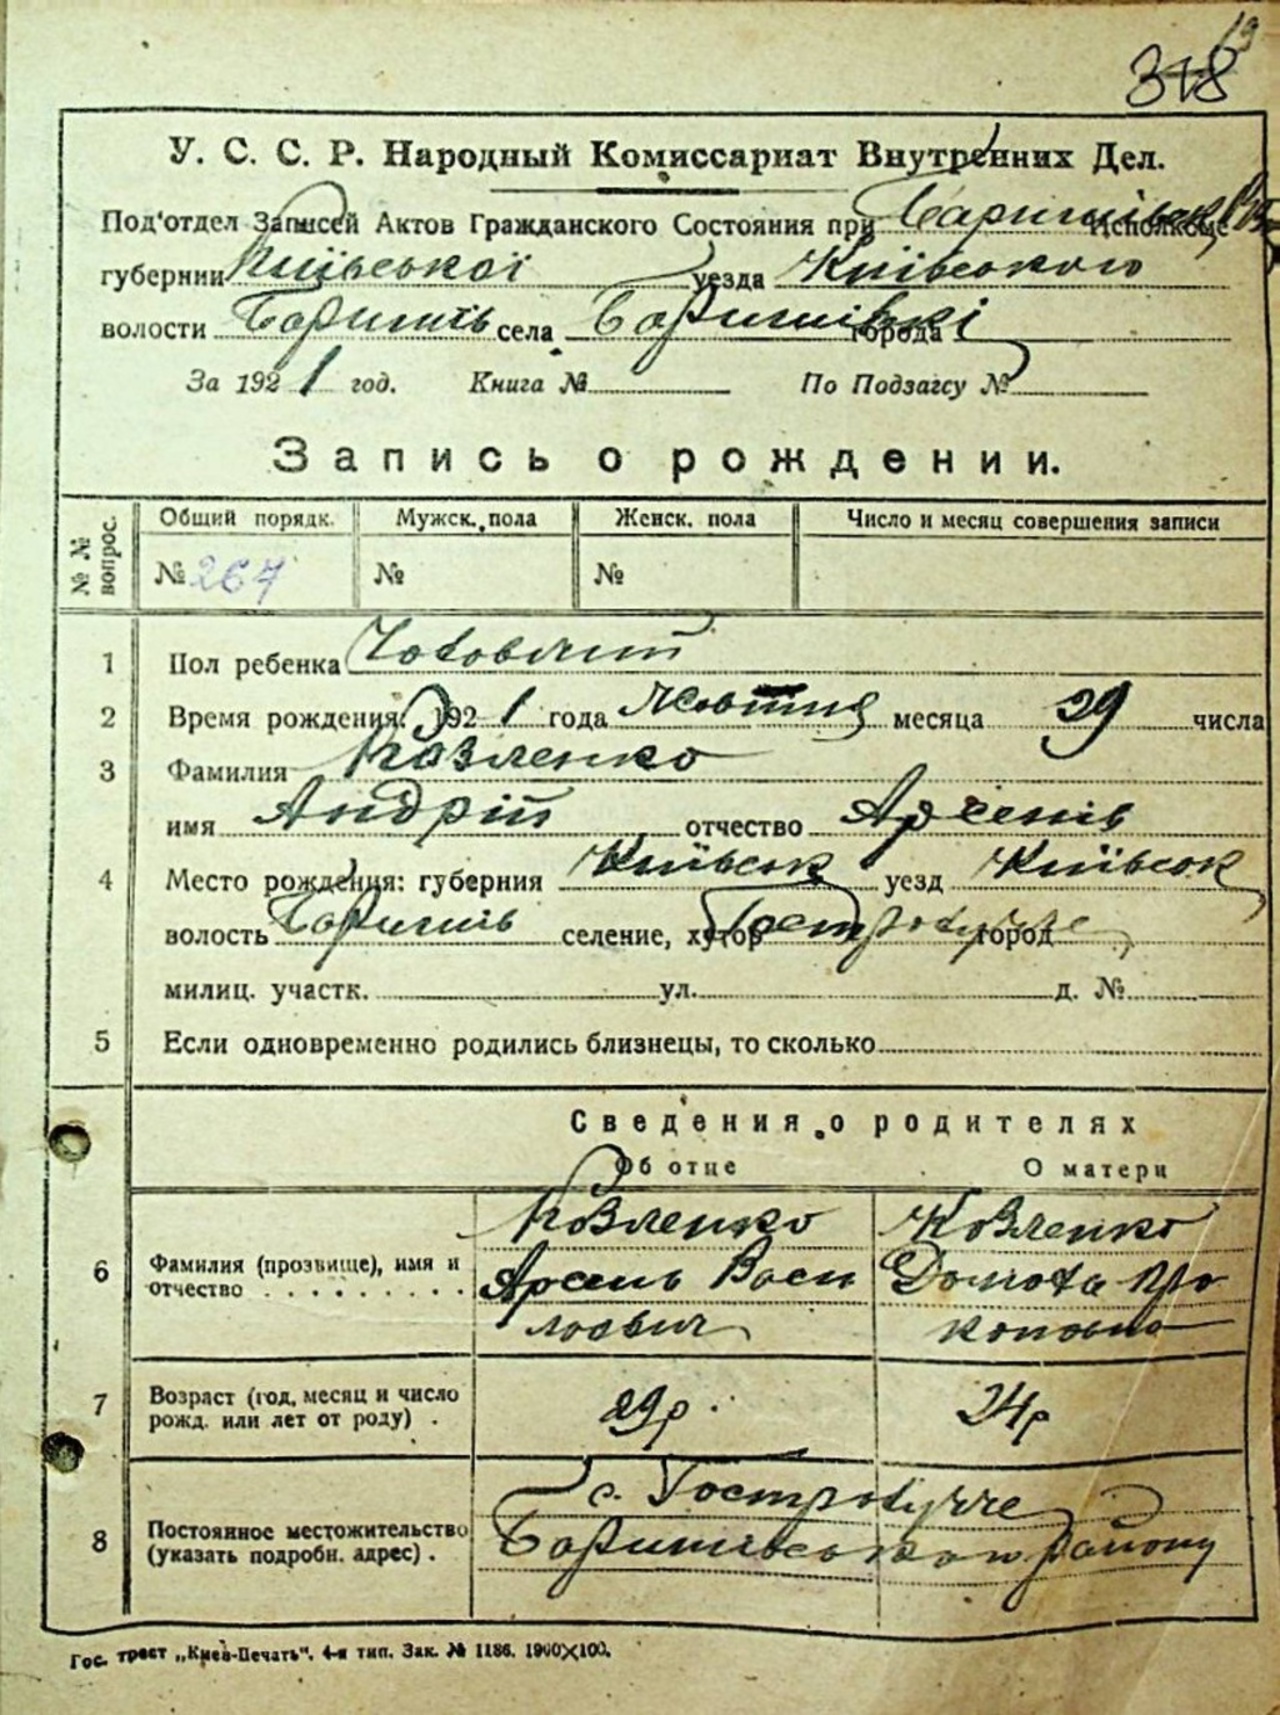 318
У. С. С. Р. Народный Комиссариат Внутренних Дел.
Под'отдел Записей Актов Гражданского Состояния при Исполкоме
губернии Київської уезда Київського
волости Баришів села Баришівкі города
За 1921 год. Книга № По Подзагсу №
Запись о рождении.
№№ вопрос. Общий порядк. Мужск. пола Женск. пола Число и месяц совершения записи
№ 267 № №
1 Пол ребенка Чоловічий
2 Время рождения: 1921 года Жовтня месяца 29 числа
3 Фамилия Козленко
имя Андрій отчество Арсенів
4 Место рождения: губерния Київськ уезд Київськ
волость Баришів селение, хутор Гостролуччє город
милиц. участк. ул. д. №
5 Если одновременно родились близнецы, то сколько
Сведения о родителях
Об отце О матери
Козленко Козленко
6 Фамилия (прозвище), имя и отчество Арсень Васи Домаха Про
льович коповна
7 Возраст (год, месяц и число рожд. или лет от роду) . 29 р. 24 р
с. Гостролучче
8 Постоянное местожительство (указать подробн. адрес) . Баришівського району
Гос. трест „Киев-Печать". 4-я тип. Зак. № 1186. 1900×100.